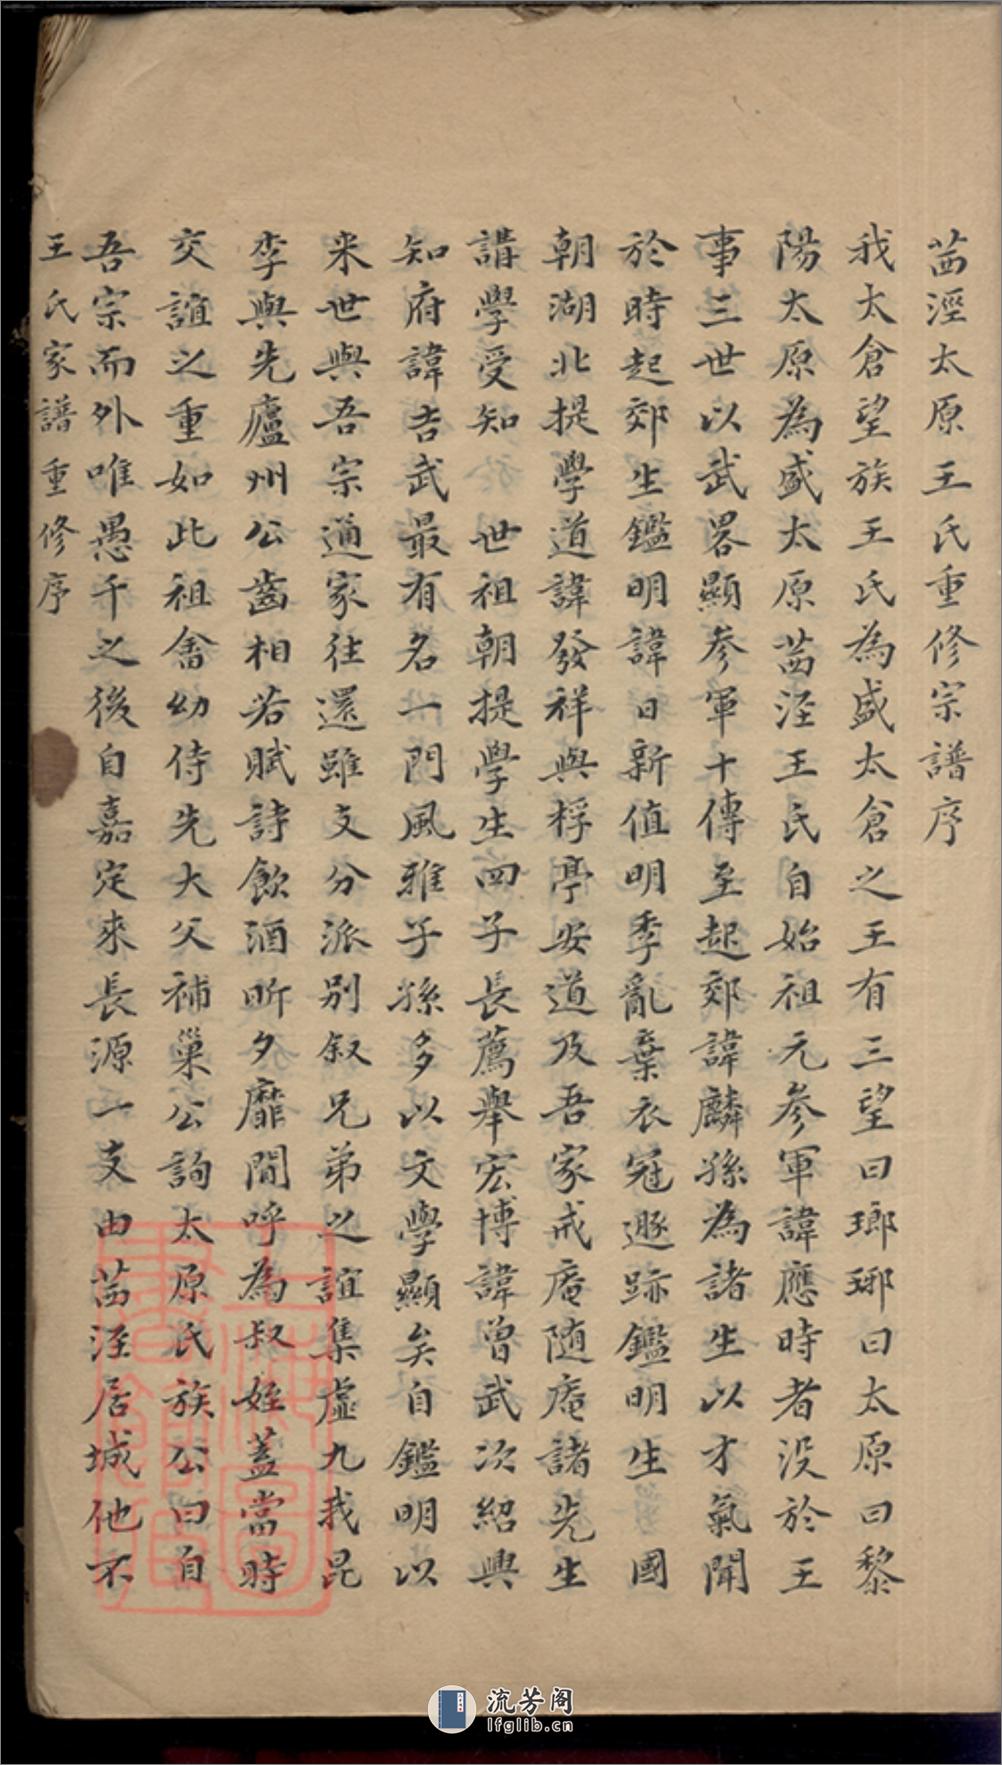 茜涇太原王氏重修宗譜序
我太倉望族王氏為盛太倉之王有三望曰瑯琊曰太原曰黎
陽太原為盛太原茜涇王氏自始祖元參軍諱應時者没於王
事三世以武畧顯參軍十傳至起郊諱麟孫為諸生以才氣聞
於時起郊生鑑明諱日新值明季亂棄衣冠遯跡鑑明生國
朝湖北提學道諱發祥與桴亭安道及吾家戒庵随庵諸先生
講學受知 世祖朝提學生四子長薦舉宏博諱曾武次紹興
知府諱吉武最有名一門風雅子孫多以文學顯矣自鑑明以
来世與吾宗通家往還雖支分派别叙兄弟之誼集虛九我昆
季與先廬州公齒相若賦詩飲酒昕夕靡間呼為叔姪蓋當時
交誼之重如此祖畬幼侍先大父補巢公詢太原氏族公曰自
吾宗而外唯愚千之後自嘉定來長源一支由茜涇居城他不
王氏家譜重修序
上海圖書館藏
流芳阁
lfglib.cn